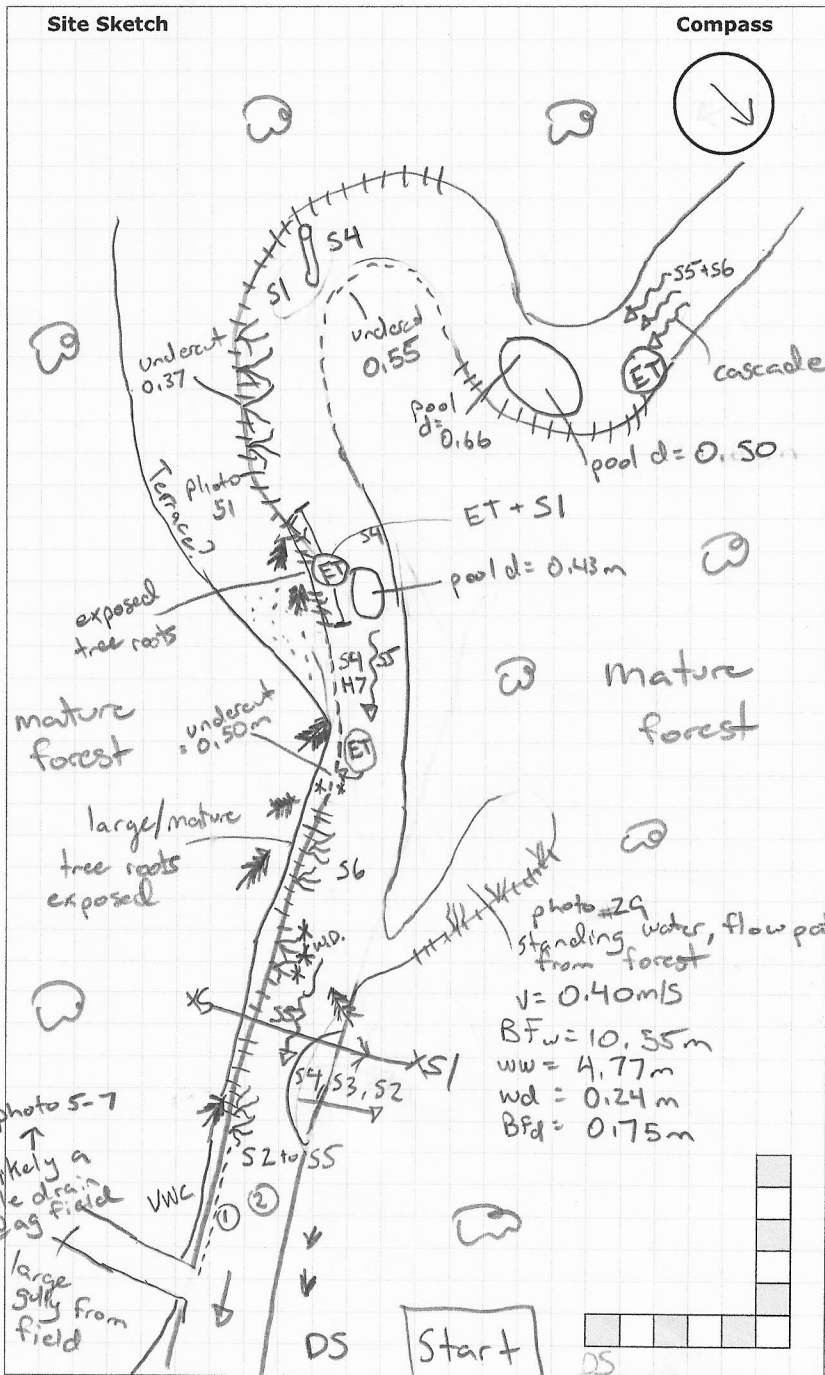 Site Sketch
Compass
S4
S1
S5+S6
undercut
0.37
undercut
0.55
ET
cascade
pool
d=
0.66
pool d= 0.50
Terrace
photo
S1
ET + S1
S4
ET
pool d= 0.43m
exposed
tree roots
S4
H7
S5
mature
forest
mature
forest
undercut
=0.50m
ET
large/mature
tree roots
exposed
S6
W.D.
photo #29
standing water, flow
from forest
v= 0.40m/s
BFw= 10.55m
ww= 4.77m
wd= 0.24m
BFd= 0.75m
XS
S5
XS1
S4, S3, S2
photo 5-7
a
drain
ag field
S2 to S5
VWC
1
2
large
gully from
field
DS
Start
DS